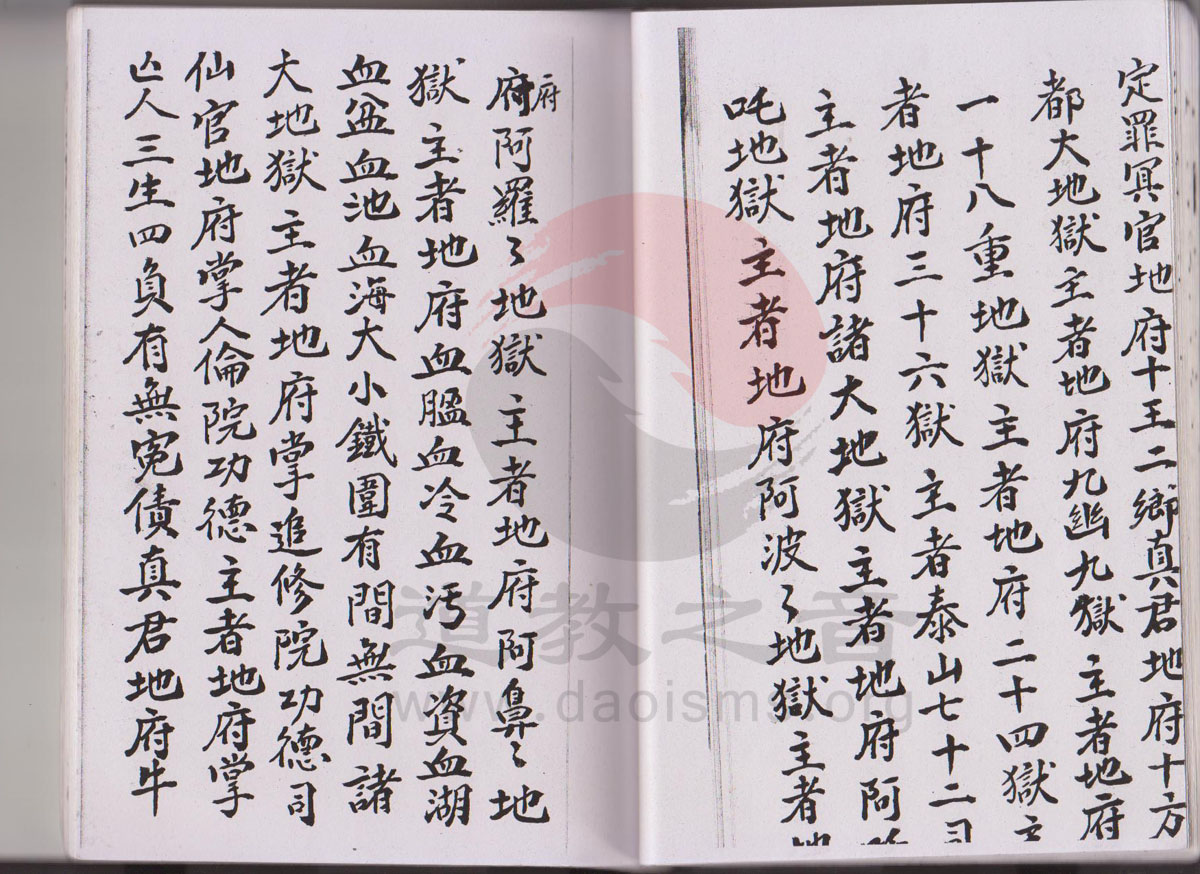 定罪冥官地府十王二卿真君地府十方
都大地獄主者地府九幽九獄主者地府
一十八重地獄主者地府二十四獄主
者地府三十六獄主者泰山七十二司
主者地府諸大地獄主者地府阿
吒地獄主者地府阿波〻地獄主者地
府
府阿羅〻地獄主者地府阿鼻〻地
獄主者地府血膃血冷血污血資血湖
血盆血池血海大小鐵圍有間無間諸
大地獄主者地府掌追修院功德司
仙官地府掌人倫院功德主者地府掌
亾人三生四負有無寃債真君地府牛
道教之音
www.daoisms.org